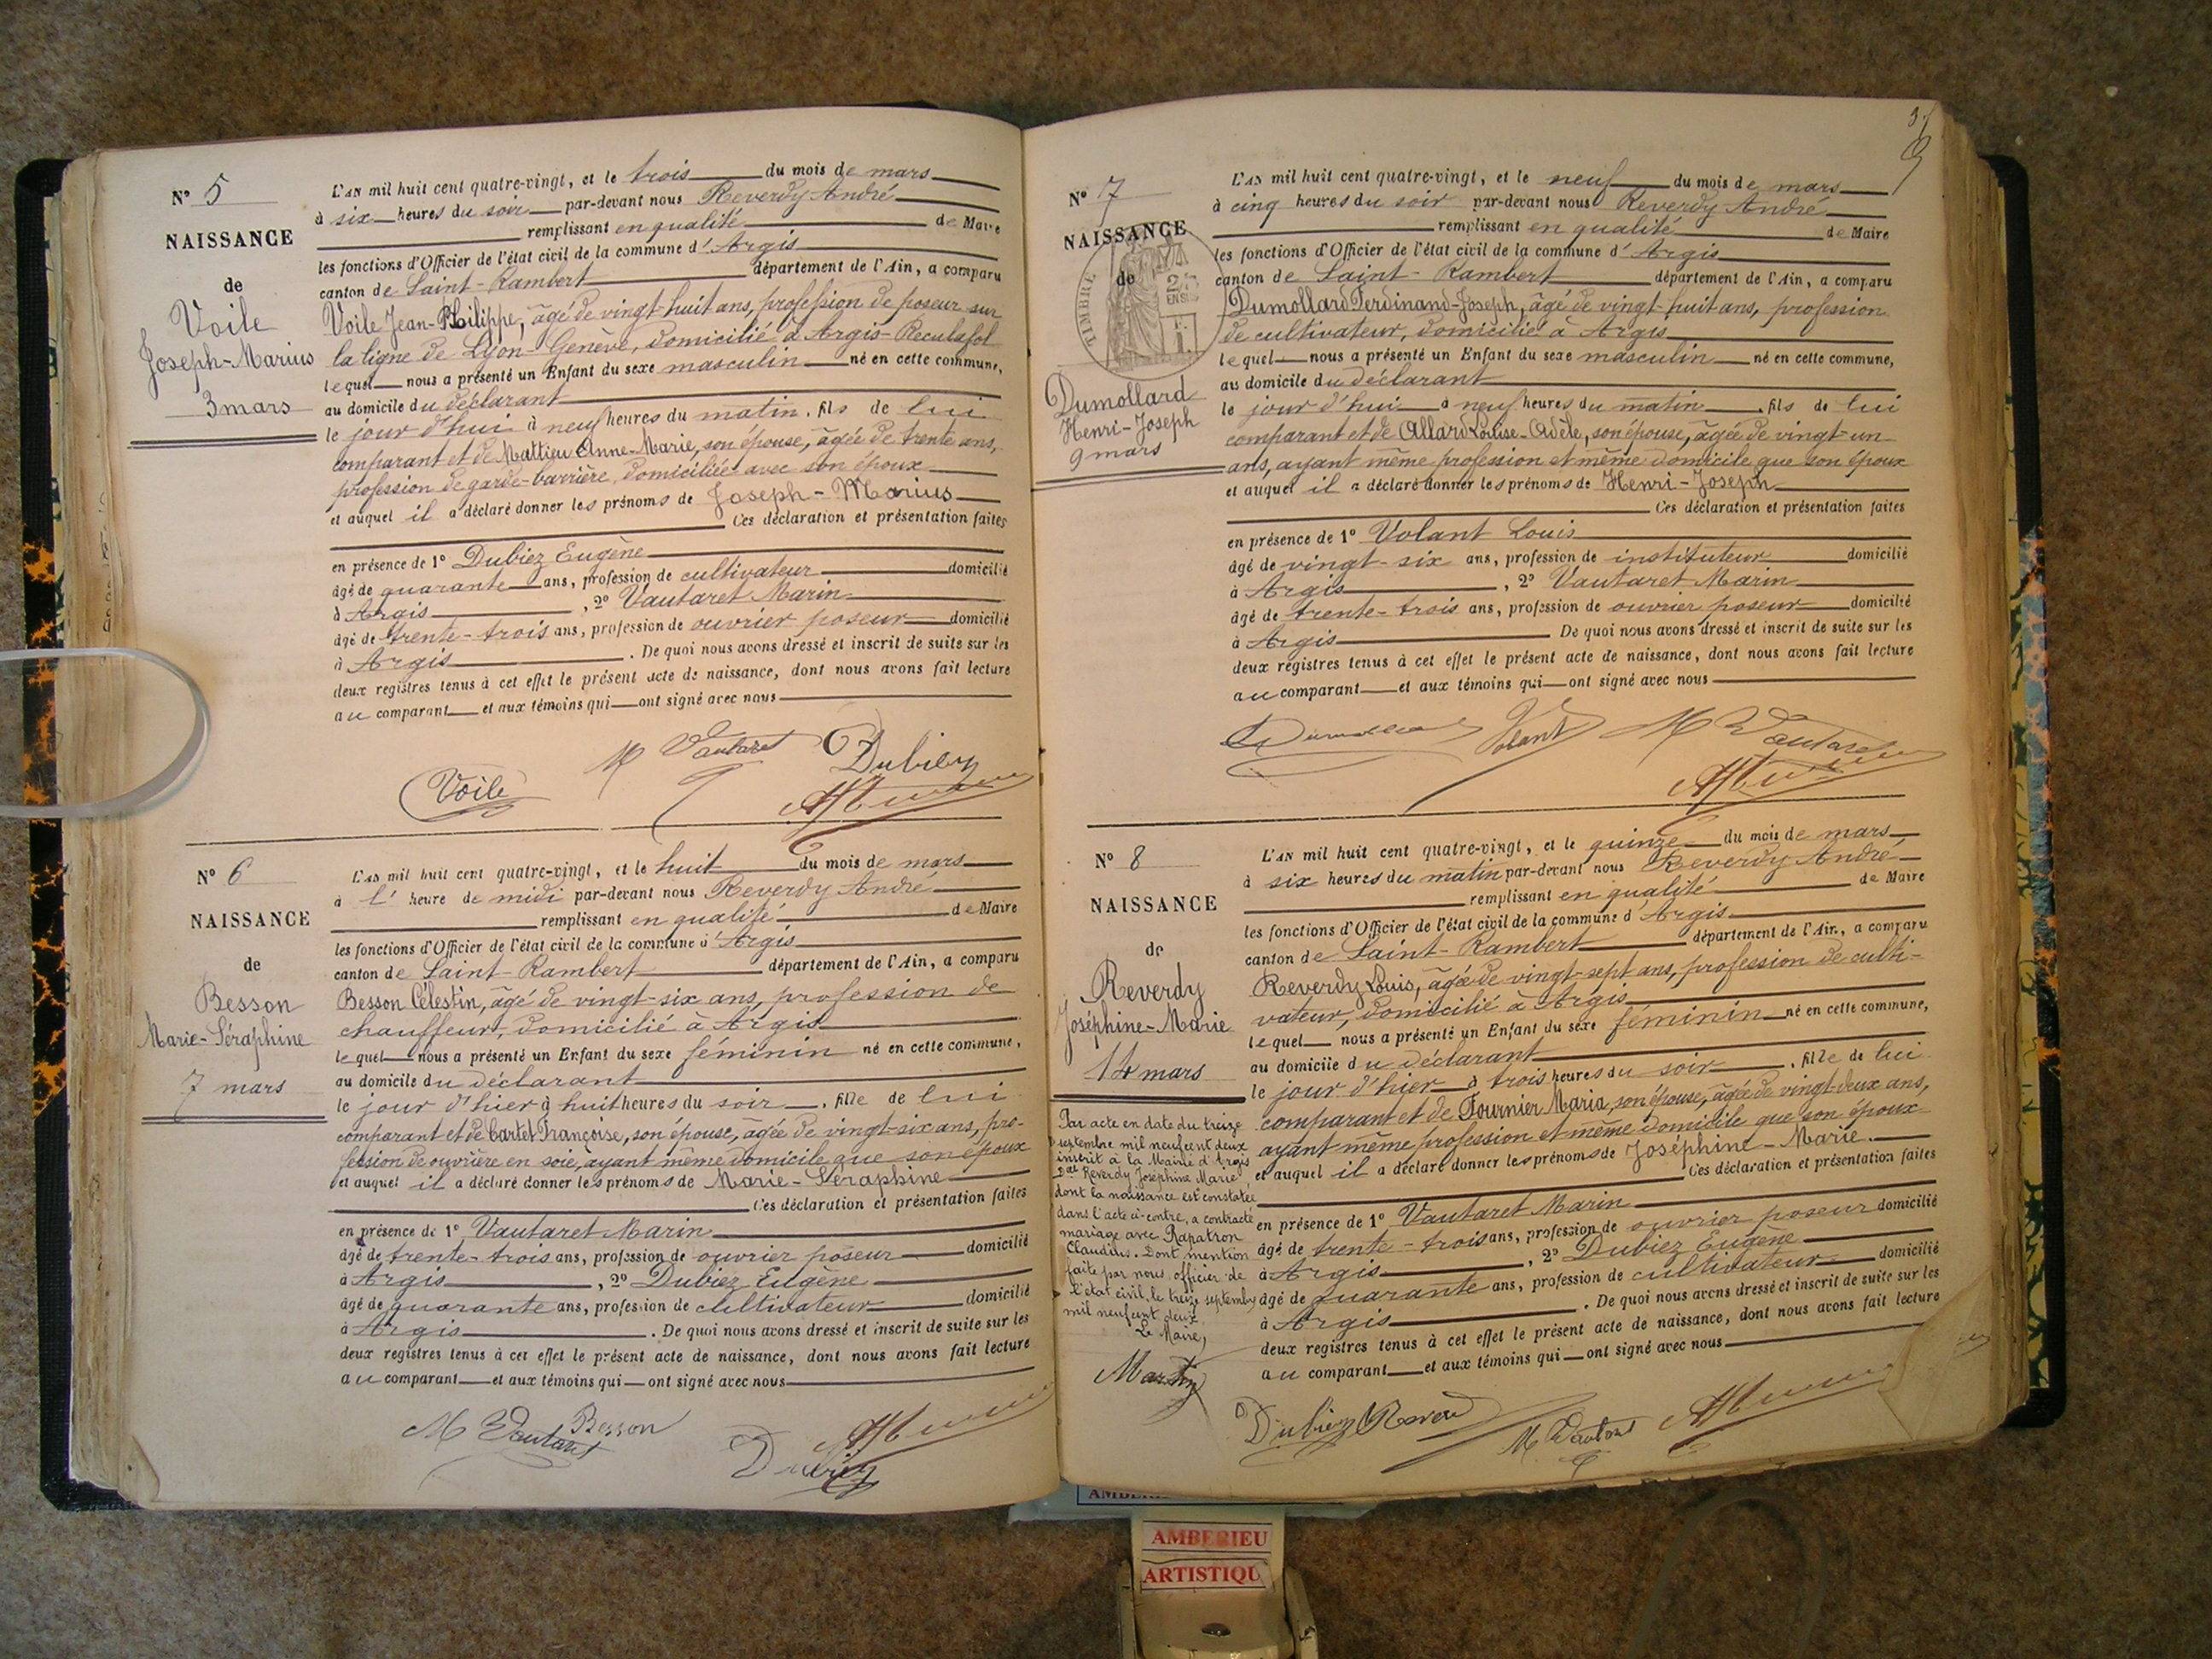 N° 5
NAISSANCE
de
Voile
Joseph-Marius
3 mars
L'AN mil huit cent quatre-vingt, et le trois du mois de mars
à six heures du soir par-devant nous Reverdy André
remplissant en qualité de Maire
les fonctions d'Officier de l'état civil de la commune d'Argis
canton de Saint-Rambert département de l'Ain, a comparu
Voile Jean-Philippe, âgé de vingt-huit ans, profession de poseur sur
la ligne de Lyon-Genève, domicilié à Argis-Reculafol
lequel nous a présenté un Enfant du sexe masculin né en cette commune,
au domicile du déclarant
le jour d'hui à neuf heures du matin, fils de lui
comparant et de Mattieu Anne-Marie, son épouse, âgée de trente ans,
profession de garde-barrière, domiciliée avec son époux
et auquel il a déclaré donner les prénoms de Joseph-Marius
Ces déclaration et présentation faites
en présence de 1° Dubiez Eugène
âgé de quarante ans, profession de cultivateur domicilié
à Argis, 2° Vautaret Marin
âgé de trente-trois ans, profession de ouvrier poseur domicilié
à Argis. De quoi nous avons dressé et inscrit de suite sur les
deux registres tenus à cet effet le présent acte de naissance, dont nous avons fait lecture
au comparant et aux témoins qui ont signé avec nous
Voile M Vautaret Dubiez
N° 6
NAISSANCE
de
Besson
Marie-Séraphine
7 mars
L'AN mil huit cent quatre-vingt, et le huit du mois de mars
à l' heure de midi par-devant nous Reverdy André
remplissant en qualité de Maire
les fonctions d'Officier de l'état civil de la commune d'Argis
canton de Saint-Rambert département de l'Ain, a comparu
Besson Célestin, âgé de vingt-six ans, profession de
chauffeur, domicilié à Argis
lequel nous a présenté un Enfant du sexe féminin né en cette commune,
au domicile du déclarant
le jour d'hier à huit heures du soir, fille de lui
comparant et de Cartet Françoise, son épouse, âgée de vingt-six ans, pro-
fession de ouvrière en soie, ayant même domicile que son époux
et auquel il a déclaré donner les prénoms de Marie-Séraphine
Ces déclaration et présentation faites
en présence de 1° Vautaret Marin
âgé de trente-trois ans, profession de ouvrier poseur domicilié
à Argis, 2° Dubiez Eugène
âgé de quarante ans, profession de cultivateur domicilié
à Argis. De quoi nous avons dressé et inscrit de suite sur les
deux registres tenus à cet effet le présent acte de naissance, dont nous avons fait lecture
au comparant et aux témoins qui ont signé avec nous
M Vautaret Besson Dubiez
N° 7
NAISSANCE
de
TIMBRE
Dumollard
Henri-Joseph
9 mars
L'AN mil huit cent quatre-vingt, et le neuf du mois de mars
à cinq heures du soir par-devant nous Reverdy André
remplissant en qualité de Maire
les fonctions d'Officier de l'état civil de la commune d'Argis
canton de Saint-Rambert département de l'Ain, a comparu
Dumollard Ferdinand-Joseph, âgé de vingt-huit ans, profession
de cultivateur, domicilié à Argis
lequel nous a présenté un Enfant du sexe masculin né en cette commune,
au domicile du déclarant
le jour d'hui à neuf heures du matin, fils de lui
comparant et de Allard Louise-Adèle, son épouse, âgée de vingt-un
ans, ayant même profession et même domicile que son époux
et auquel il a déclaré donner les prénoms de Henri-Joseph
Ces déclaration et présentation faites
en présence de 1° Volant Louis
âgé de vingt-six ans, profession de instituteur domicilié
à Argis, 2° Vautaret Marin
âgé de trente-trois ans, profession de ouvrier poseur domicilié
à Argis De quoi nous avons dressé et inscrit de suite sur les
deux registres tenus à cet effet le présent acte de naissance, dont nous avons fait lecture
au comparant et aux témoins qui ont signé avec nous
Volant M Vautaret
N° 8
NAISSANCE
de
Reverdy
Joséphine-Marie
14 mars
Par acte en date du treize
septembre mil neuf cent deux
inscrit à la Mairie d'Argis
Delle Reverdy Joséphine Marie
dont la naissance est constatée
dans l'acte ci-contre, a contracté
mariage avec Rapatron
Claudius. Dont mention
faite par nous officier de
l'état civil, le treize septembre
mil neuf cent deux
Le Maire,
Martin
L'AN mil huit cent quatre-vingt, et le quinze du mois de mars
à six heures du matin par-devant nous Reverdy André
remplissant en qualité de Maire
les fonctions d'Officier de l'état civil de la commune d'Argis
canton de Saint-Rambert département de l'Ain, a comparu
Reverdy Louis, âgé de vingt-sept ans, profession de culti-
vateur, domicilié à Argis
lequel nous a présenté un Enfant du sexe féminin né en cette commune,
au domicile du déclarant
le jour d'hier à trois heures du soir, fille de lui
comparant et de Fournier Maria, son épouse, âgée de vingt-deux ans,
ayant même profession et même domicile que son époux
et auquel il a déclaré donner les prénoms de Joséphine-Marie.
Ces déclaration et présentation faites
en présence de 1° Vautaret Marin
âgé de trente-trois ans, profession de ouvrier poseur domicilié
à Argis, 2° Dubiez Eugène
âgé de quarante ans, profession de cultivateur domicilié
à Argis. De quoi nous avons dressé et inscrit de suite sur les
deux registres tenus à cet effet le présent acte de naissance, dont nous avons fait lecture
au comparant et aux témoins qui ont signé avec nous
Dubiez M Vautaret
AMBERIEU
ARTISTIQU